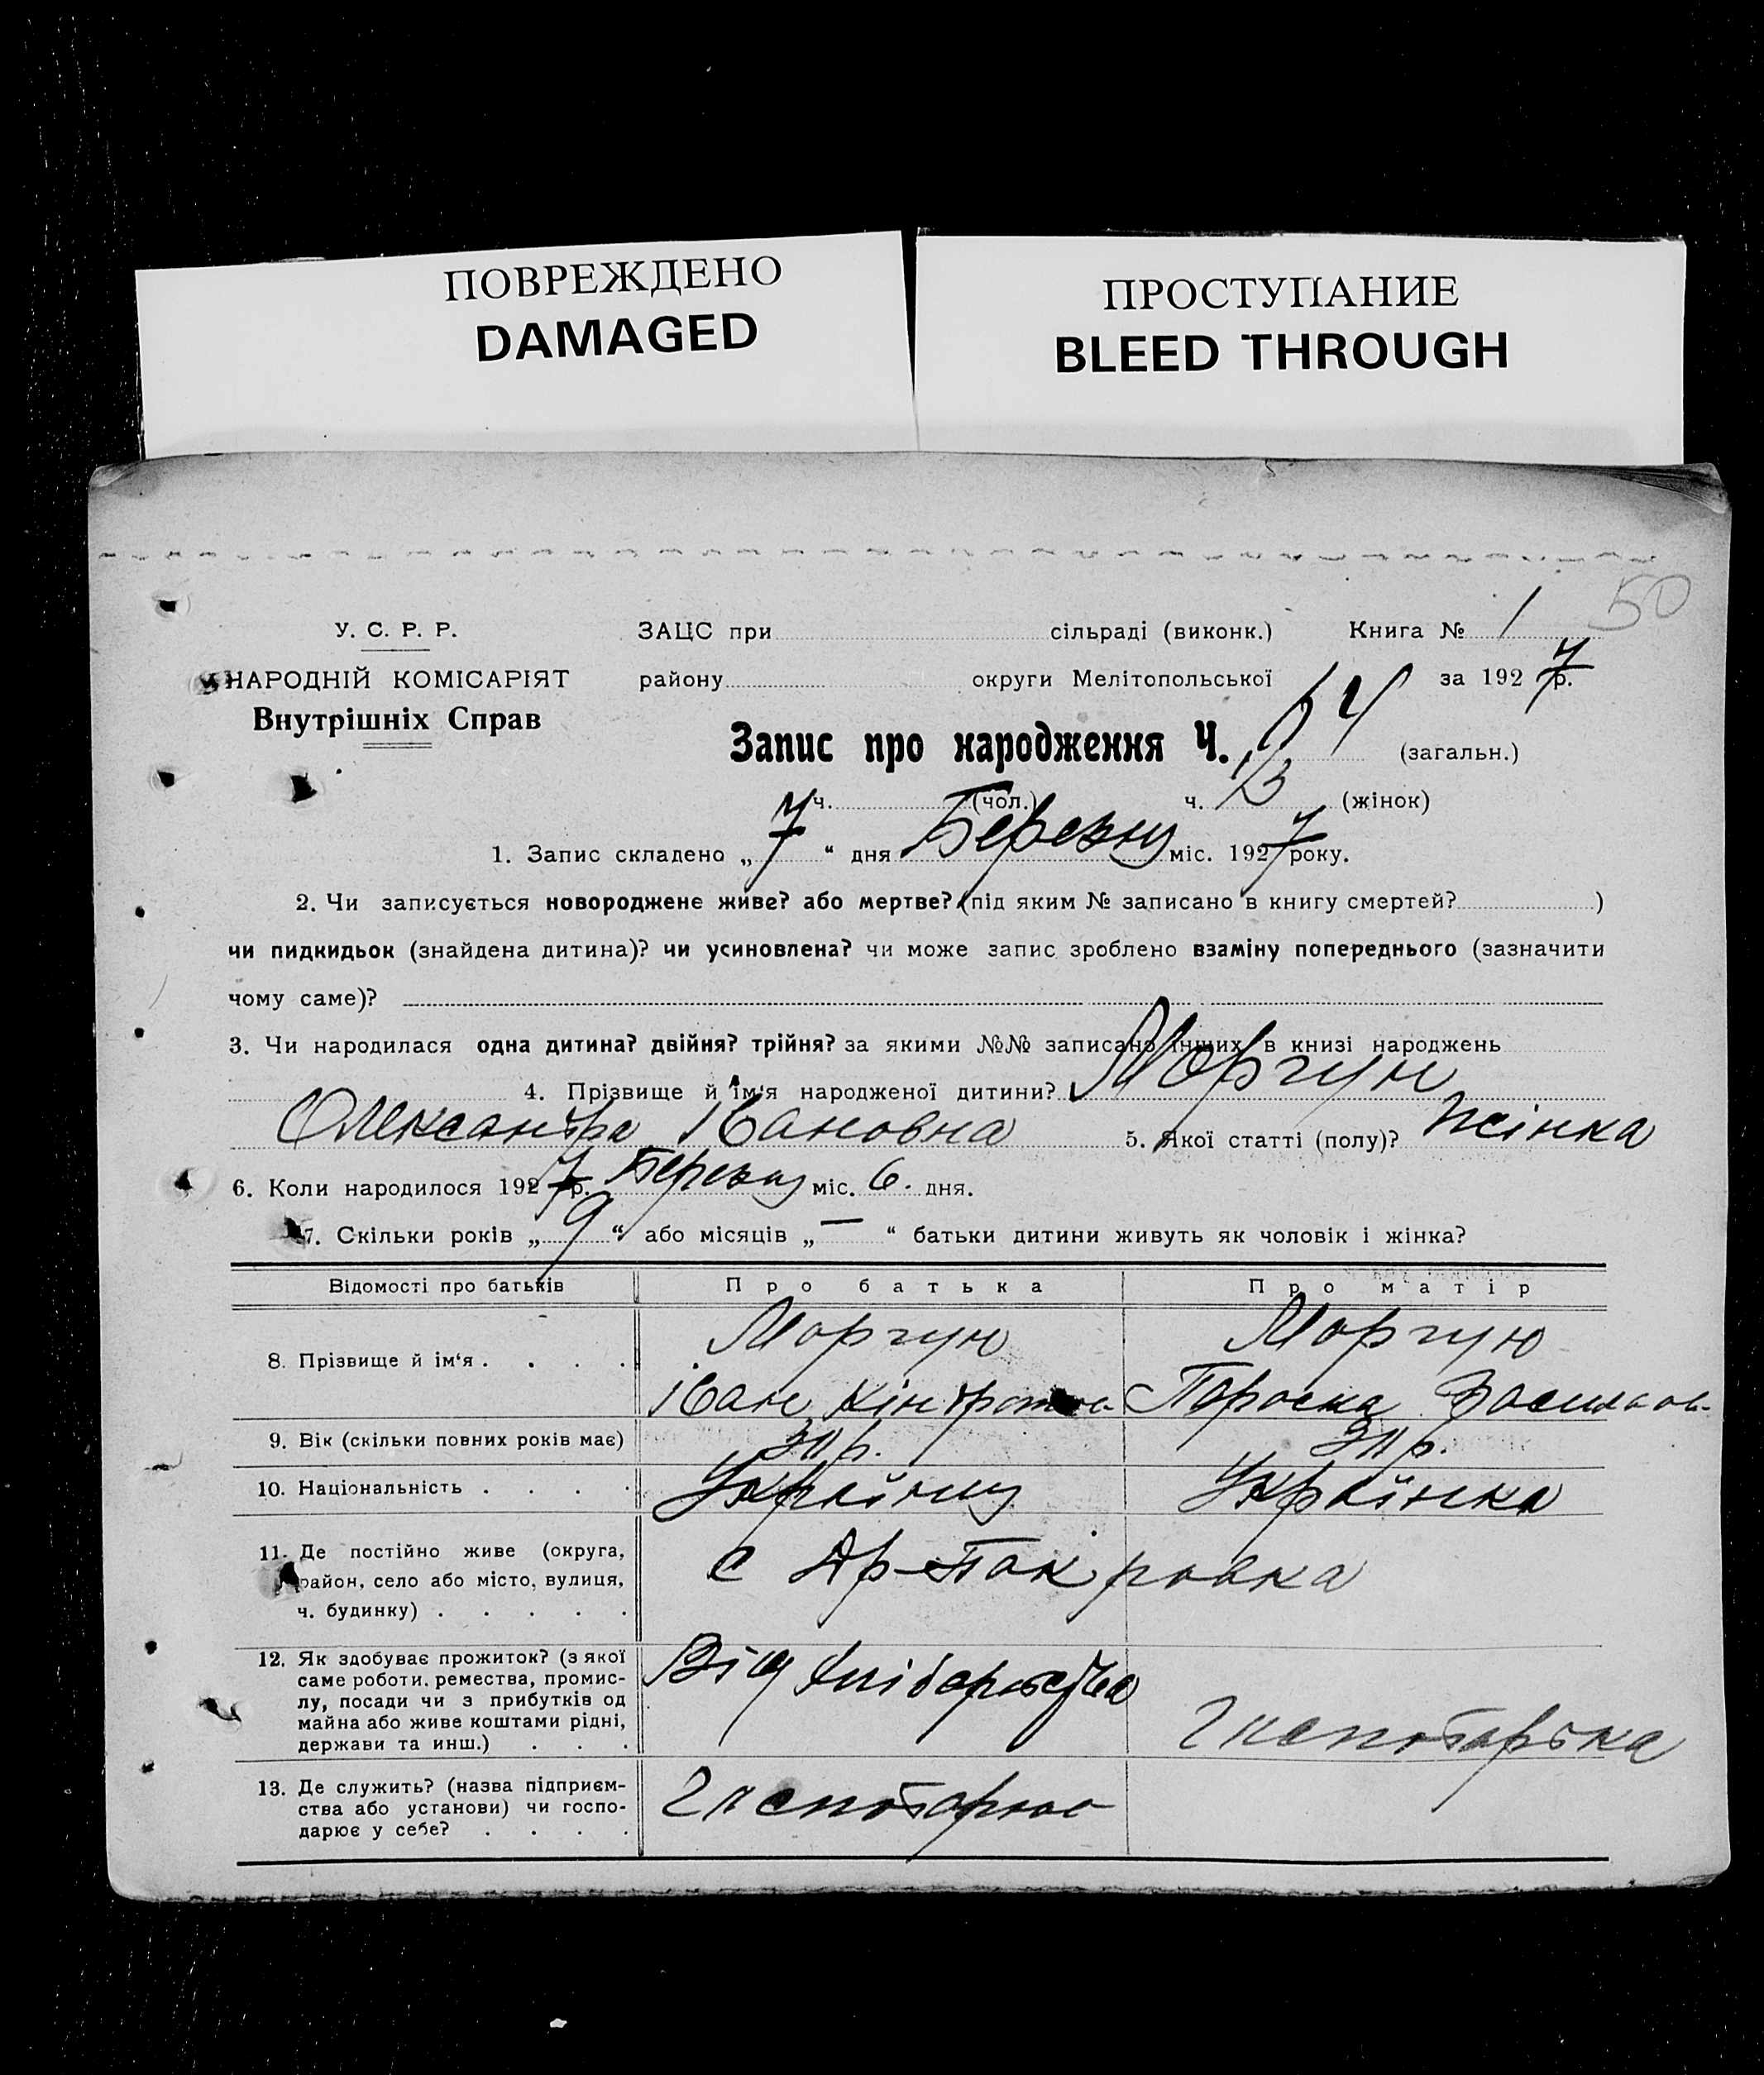 ПОВРЕЖДЕНО
DAMAGED
ПРОСТУПАНИЕ
BLEED THROUGH
50
У. С. Р. Р.
ЗАЦС при сільраді (виконк.) Книга № 1
НАРОДНІЙ КОМІСАРІЯТ
району округи Мелітопольської за 1927 р.
Внутрішніх Справ
Запис про народження Ч. (загальн.)
ч. (чол.) ч. 13 (жінок)
1. Запис складено „7“ дня Березня міс. 1927 року.
2. Чи записується новороджене живе? або мертве? (під яким № записано в книгу смертей? )
чи пидкидьок (знайдена дитина)? чи усиновлена? чи може запис зроблено взаміну попереднього (зазначити
чому саме)?
3. Чи народилася одна дитина? двійня? трійня? за якими №№ записано інших в книзі народжень
4. Прізвище й ім‘я народженої дитини? Моргун
Олександра Івановна 5. Якої статті (полу)? Жінка
6. Коли народилося 1927 р. Березня міс. 6. дня.
7. Скільки років „9“ або місяців „—“ батьки дитини живуть як чоловік і жінка?
Відомості про батьків Про батька Про матір
8. Прізвище й ім‘я . . . . Моргун Моргун
Іван
9. Вік (скільки повних років має)
10. Національність . . . . Українка
11. Де постійно живе (округа,
район, село або місто, вулиця,
ч. будинку) . . . . .
с
12. Як здобуває прожиток? (з якої
саме роботи, ремества, промис-
лу, посади чи з прибутків од
майна або живе коштами рідні,
держави та инш.) . . .
Від
13. Де служить? (назва підприєм-
ства або установи) чи госпо-
дарює у себе? . . . .